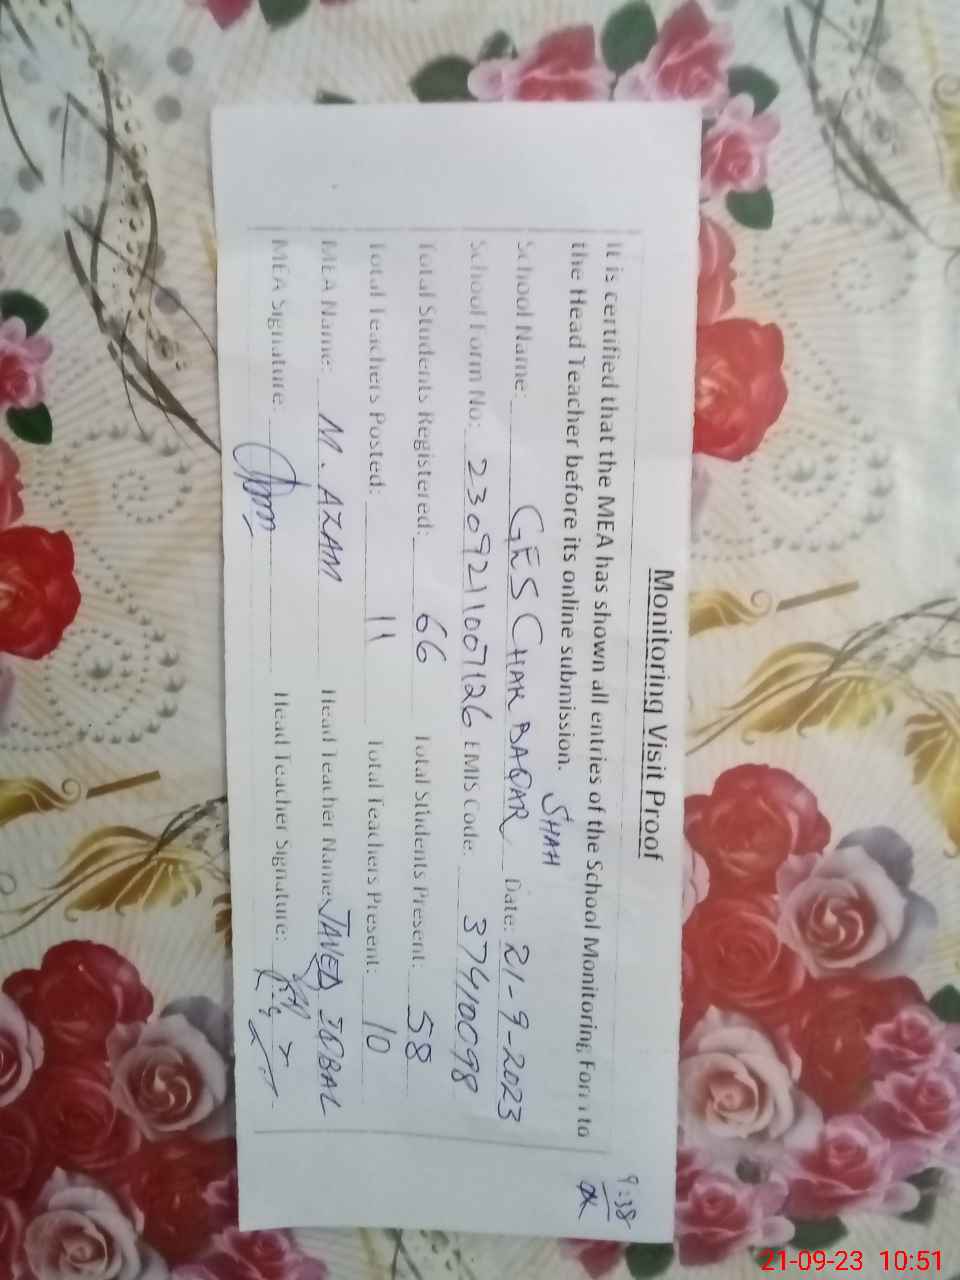 9:38
Monitoring Visit Proof
It is certified that the MEA has shown all entries of the School Monitoring Form to
the Head Teacher before its online submission.
School Name: GES CHAK BAQAR SHAH Date: 21-9-2023
School Form No: 2309211007126 EMIS Code: 37410098
Total Students Registered: 66 Total Students Present: 58
Total Teachers Posted: 11 Total Teachers Present: 10
MEA Name: M. AZAM Head Teacher Name: JAVED IQBAL
MEA Signature: Head Teacher Signature:
21-09-23 10:51